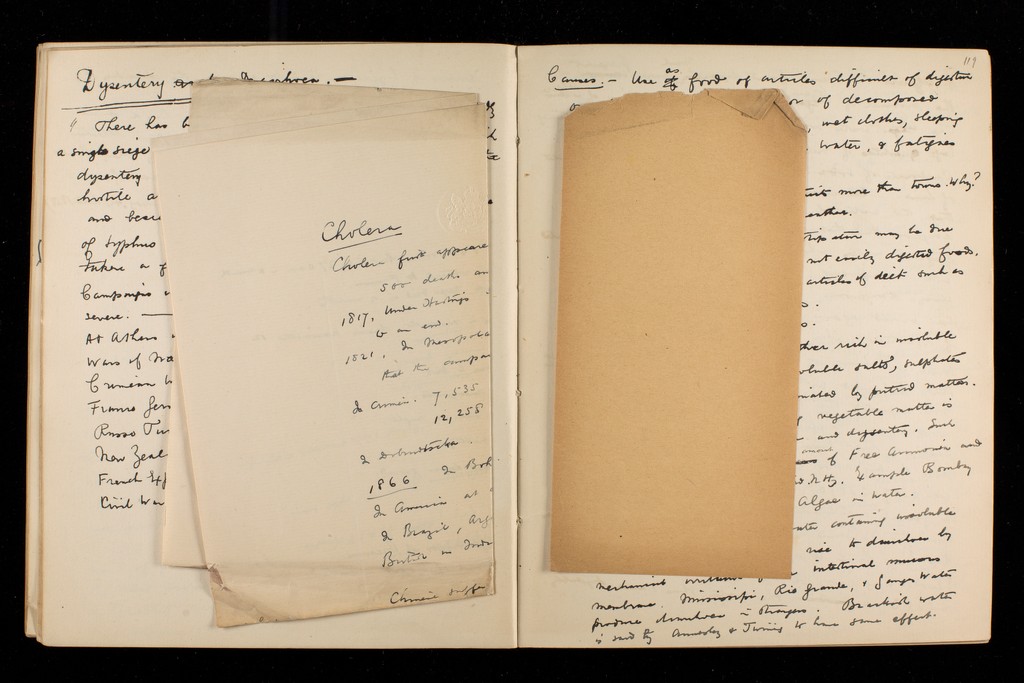 Dysentery and Diarrhoea. —
" There has b
a single siege
dysentery
hostile a
and besie
of typhus
taken a f
Campaigns
severe. —
At Athens
Wars of
Crimean W
Franco Ger
Russo Tu
New Zeal
French Exp
Civil War
Cholera
Cholera first appeare
500 deaths an
1817, Under Hastings
to an end.
1821, In Mesopota
that the compa
In Crimea. 7,535
12,258
In Dobrudscha.
1866 In Boh
In America at
In Brazil, Arg
British in Inde
Chinese suffer
119
Causes. — Use as food of articles difficult of digestion
or of decomposed
, wet clothes, sleeping
water, & fatigues
more than towns. Why?
weather.
may be due
not easily digested foods.
articles of diet such as
rich in insoluble
soluble salts, sulphates
by putrid matter.
vegetable matter is
and dysentery. Such
of Free Ammonia and
Example Bombay
Algae in water.
water containing insoluble
rise to diarrhoea by
mechanical irritation of intestinal mucous
membrane. Mississippi, Rio Grande, & Ganges Water
produce diarrhoea in strangers. Brackish water
is said by Annesley & Twining to have same effect.